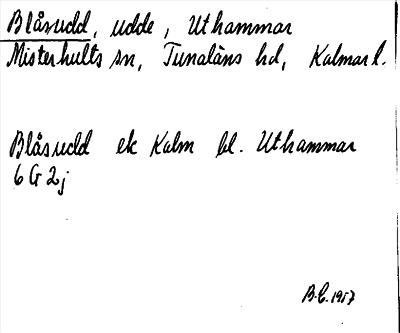 Blåsudd, udde, Uthammar
Misterhults sn, Tunaläns hd, Kalmar l.
Blåsudd ek Kalm bl. Uthammar
6 G 2j
B.E. 1957